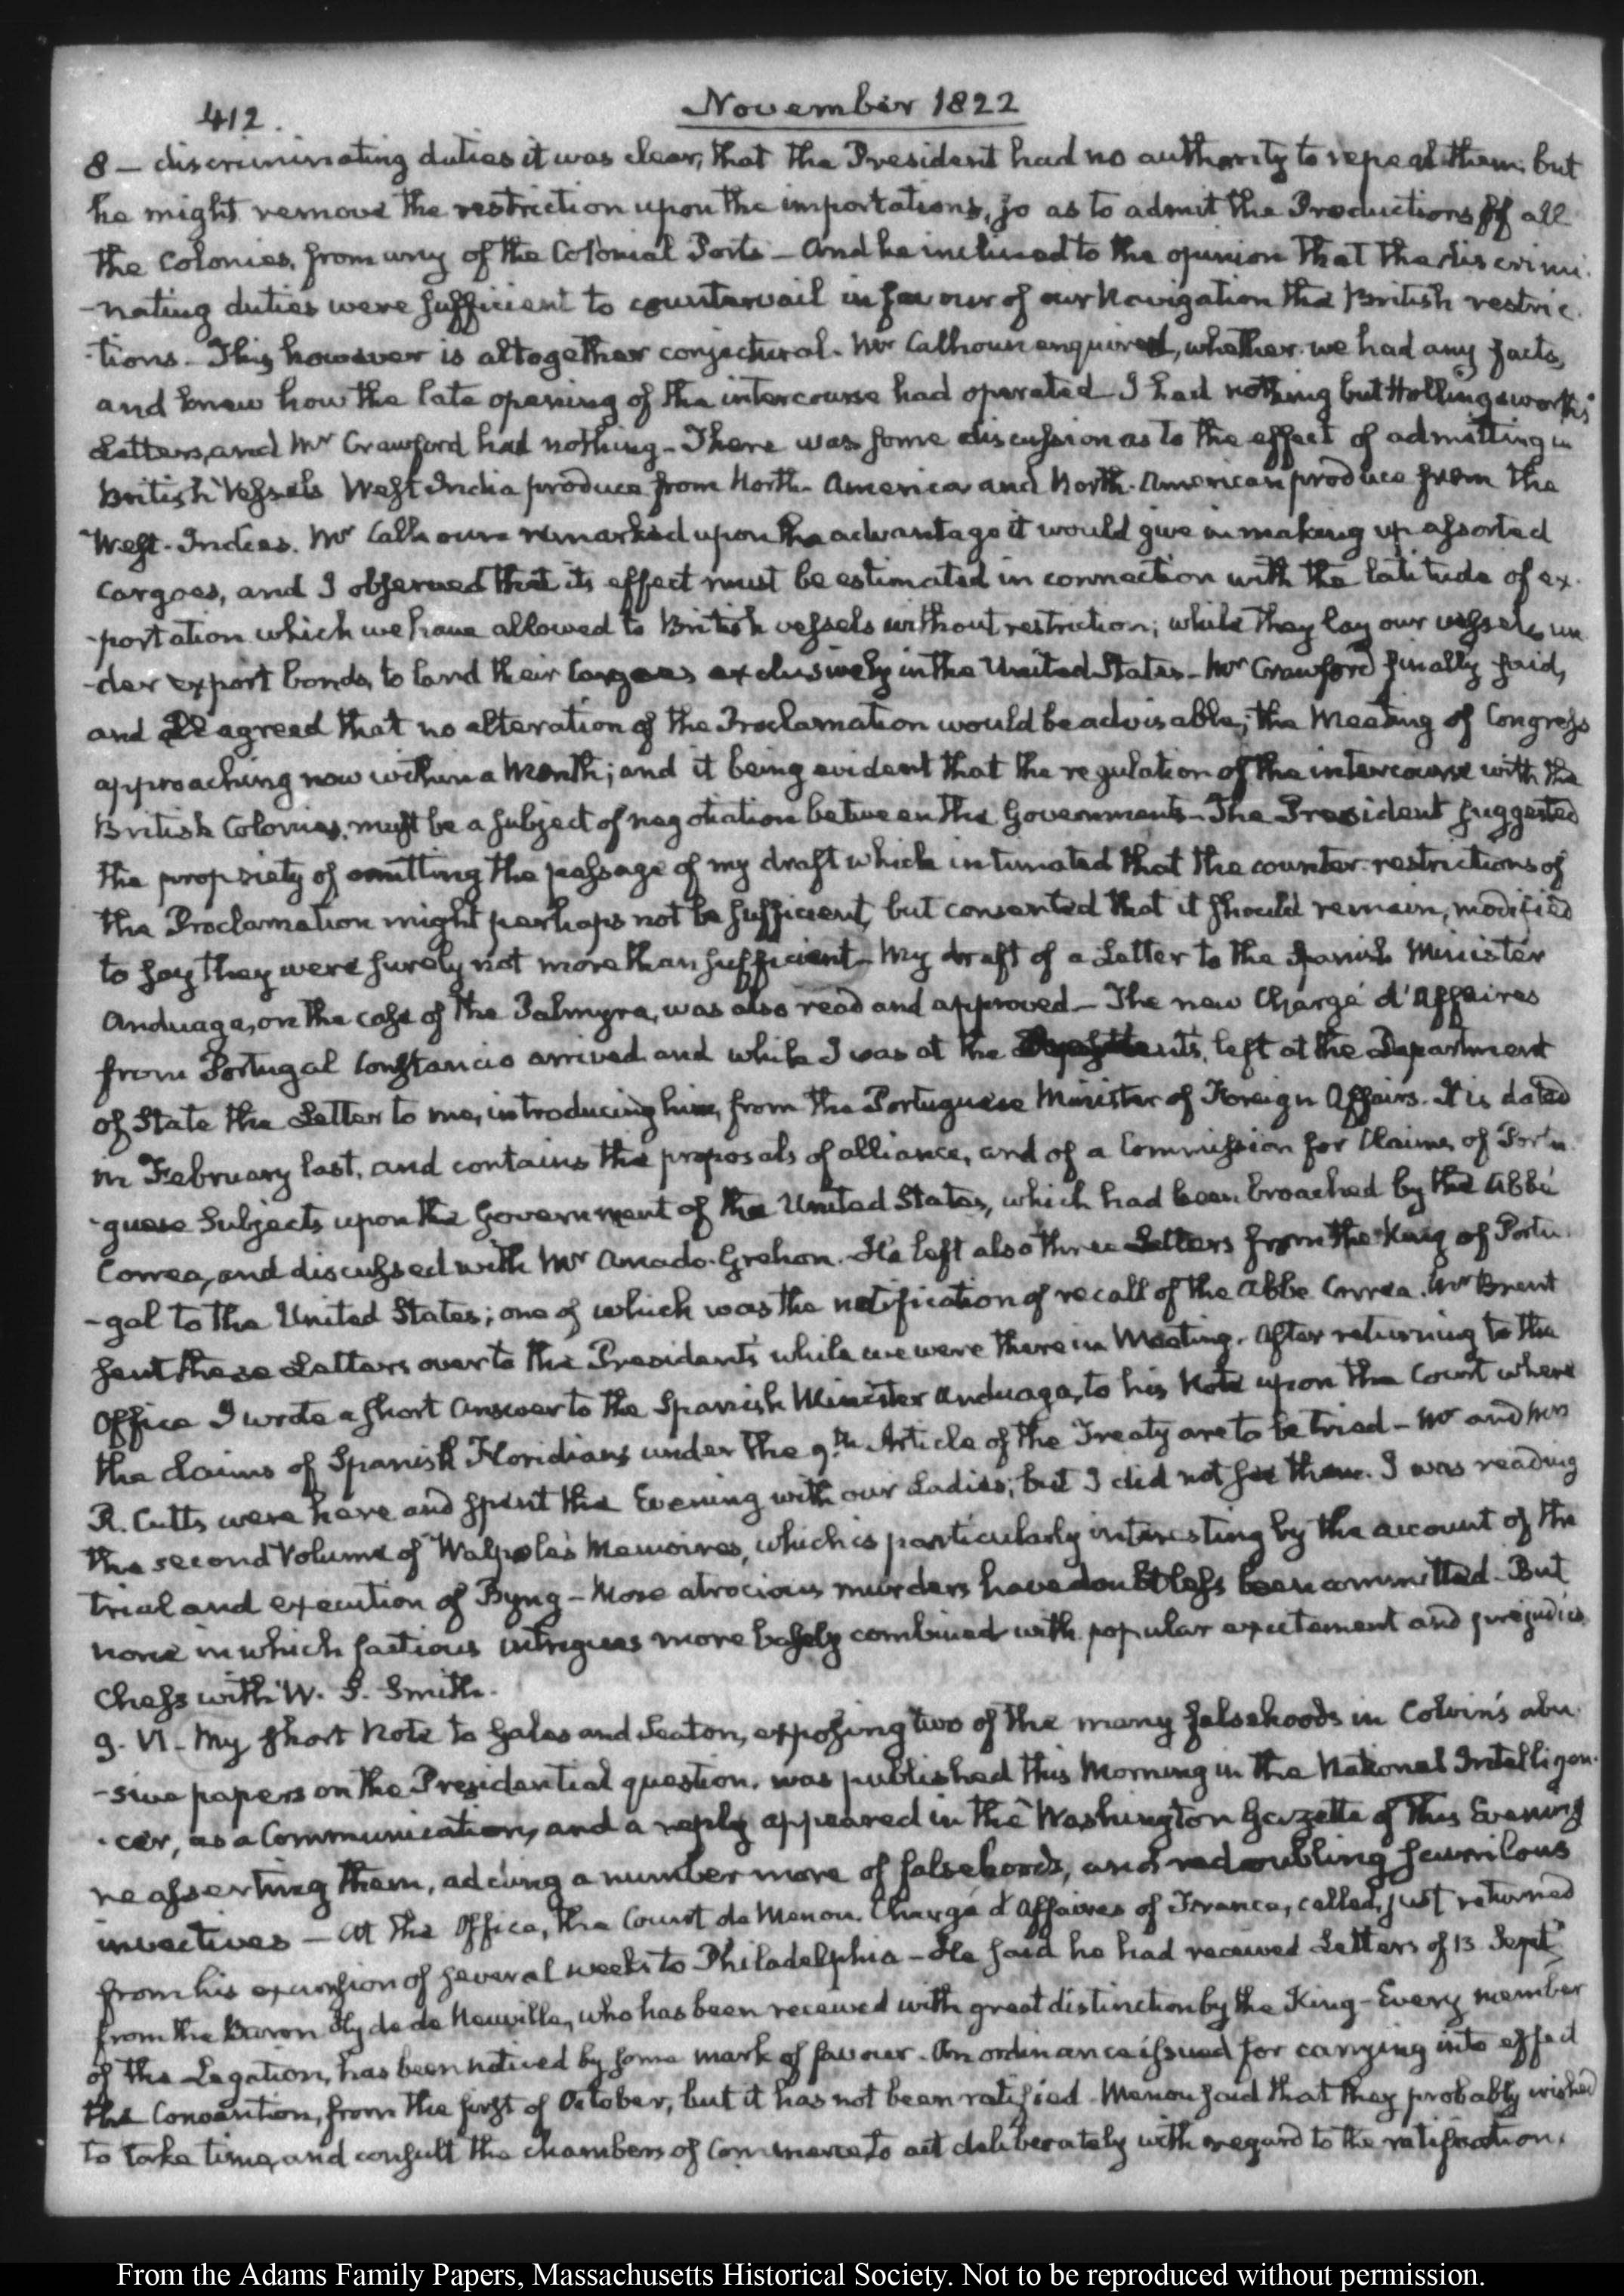 412.
November 1822
8 — discriminating duties it was clear, that the President had no authority to repeal them, but
he might remove the restriction upon the importations, so as to admit the Productions of all
the Colonies, from any of the Colonial Ports — And he inclined to the opinion that the discrimi-
-nating duties were sufficient to countervail in favour of our Navigation the British restric-
-tions — This however is altogether conjectural. Mr Calhoun enquired, whether we had any facts,
and knew how the late opening of the intercourse had operated — I had nothing but Hollingsworth's
Letters, and Mr Crawford had nothing — There was some discussion as to the effect of admitting in
British Vessels West India produce from North-America and North-American produce from the
West-Indies. Mr Calhoun remarked upon the advantage it would give in making up assorted
Cargoes, and I observed that its effect must be estimated in connection with the latitude of ex-
-portation which we have allowed to British vessels without restriction; while they lay our vessels un-
-der export bonds, to land their Cargoes exclusively in the United States — Mr Crawford finally said,
and all agreed that no alteration of the Proclamation would be advisable; the Meeting of Congress
approaching now within a Month; and it being evident that the regulation of the intercourse with the
British Colonies, must be a subject of negotiation between the Governments — The President suggested
the propriety of omitting the passage of my draft which intimated that the counter-restrictions of
the Proclamation might perhaps not be sufficient, but consented that it should remain, modified
to say they were surely not more than sufficient — My draft of a Letter to the Spanish Minister
Anduaga, on the case of the Palmyra, was also read and approved — The new Chargé d'Affaires
from Portugal Constancio arrived and while I was at the left at the Department
of State the Letter to me, introducing him, from the Portuguese Minister of Foreign Affairs. It is dated
in February last, and contains the proposals of alliance, and of a Commission for Claims of Portu-
-guese Subjects upon the Government of the United States, which had been broached by the Abbé
Correa, and discussed with Mr Amado-Grehon. He left also three Letters from the King of Portu-
-gal to the United States; one of which was the notification of recall of the Abbe Correa. Mr Brent
sent these Letters over to the President's while we were there in Meeting. After returning to the
Office I wrote a short Answer to the Spanish Minister Anduaga, to his Note upon the Court where
the claims of Spanish Floridians under the 9th Article of the Treaty are to be tried — Mr and Mrs
R. Cutts were here and spent the Evening with our Ladies; but I did not see them. I was reading
the second Volume of Walpole's Memoires, which is particularly interesting by the account of the
trial and execution of Byng — More atrocious murders have doubtless been committed — But
none in which factious intrigues more basely combined with popular excitement and prejudice.
Chess with W. S. Smith.
9. VI. My short Note to Gales and Seaton, exposing two of the many falsehoods in Colvin's abu-
-sive papers on the Presidential question, was published this Morning in the National Intelligen-
-cer, as a Communication, and a reply appeared in the Washington Gazette of this Evening
reasserting them, adding a number more of falsehoods, and redoubling scurrilous
invectives — At the Office, the Count de Menou, Chargé d'Affaires of France, called, just returned
from his excursion of several weeks to Philadelphia — He said he had received Letters of 13 Septr
from the Baron Hyde de Neuville, who has been received with great distinction by the King — Every member
of the Legation, has been noticed by some mark of favour. An ordinance issued for carrying into effect
the Convention, from the first of October, but it has not been ratified. Menou said that they probably wished
to take time, and consult the chambers of Commerce, to act deliberately with regard to the ratification.
From the Adams Family Papers, Massachusetts Historical Society. Not to be reproduced without permission.